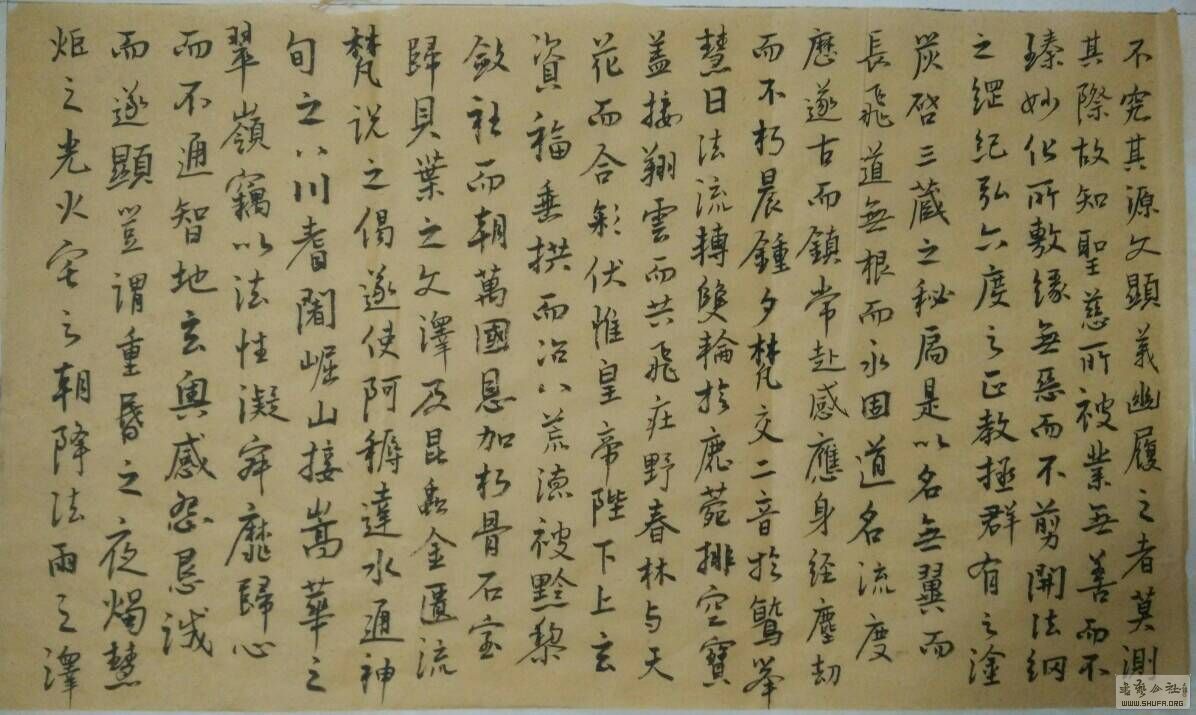 不究其源文顯義幽履之者莫測
其際故知聖慈所被業无善而不
臻妙化所敷緣無惡而不剪開法網
之綱紀弘六度之正教拯群有之塗
炭啓三蔵之秘扃是以名无翼而
長飛道無根而永固道名流慶
歷遂古而鎮常赴感應身經塵劫
而不朽晨鍾夕梵交二音於鷲峯
慧日法流轉雙輪於鹿菀排空寶
盖接翔雲而共飛莊野春林与天
花而合彩伏惟皇帝陛下上玄
資福垂拱而治八荒德被黔黎
斂衽而朝萬國恩加朽骨石室
歸貝葉之文澤及昆蟲金匱流
梵說之偈遂使阿耨達水通神
旬之八川耆闍崛山接嵩華之
翠嶺竊以法性凝寂靡歸心
而不通智地玄奧感懇誠
而遂顯豈謂重昏之夜燭慧
炬之光火宅之朝降法雨之澤
書藝公社
WWW.SHUFA.ORG